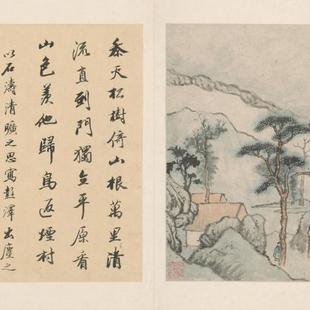 參天松樹倚山根萬里清
流直到門獨立平原看
山色羨他歸鳥返煙村
以石濤清曠之思寫彭澤出塵之